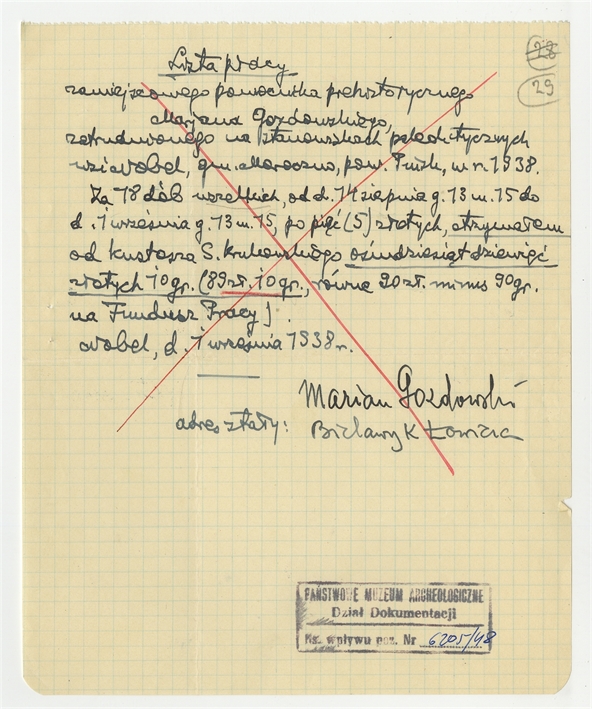 28
29
Lista płacy
zamiejscowego pomocnika prehistorycznego
Marjana Gozdowskiego,
zatrudnionego na stanowiskach paleolitycznych
wsi Nobel, gm. Moroczno, pow. Pińsk, w r. 1938.
Za 18 dób wszelkich, od d. 14 sierpnia g. 13 m. 15 do
d. 1 września g. 13 m. 15, po pięć (5) złotych, otrzymałem
od kustosza S. Krukowskiego ośmdziesiąt dziewięć
złotych 10 gr. (89 zł. 10 gr., równe 90 zł. minus 90 gr.
na Fundusz Pracy).
Nobel, d. 1 września 1938 r.
Marian Gozdowski
adres stały: Bielawy K Łowicza
PAŃSTWOWE MUZEUM ARCHEOLOGICZNE
Dział Dokumentacji
Ks. wpływu poz. Nr 6205/48